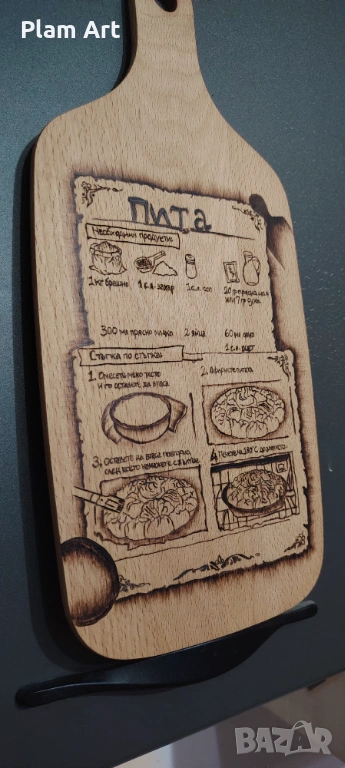 Plam Art
ПИТА
Необходими продукти:
1 кг брашно 1 с.л. захар 1 с.л. сол 20 гр прясна мая
или 7 гр суха
300 мл прясно мляко 2 яйца 60 мл олио
1 с.л. оцет
Стъпка по стъпка:
1. Омесете меко тесто
и го оставете да втаса
2.
3. Оставете да втаса повторно,
след което намажете с жълтък
4. Печете на 180°C до златисто
BAZAR